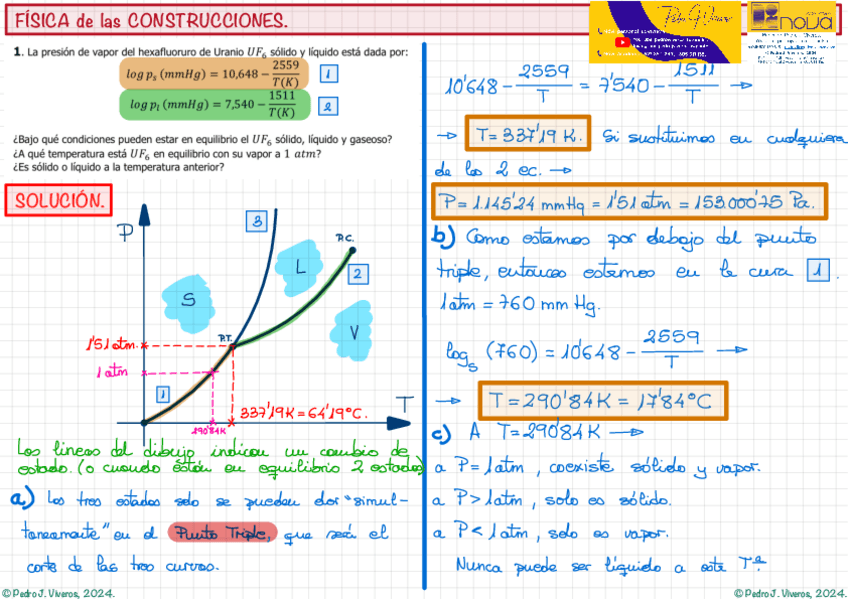 FÍSICA de las CONSTRUCCIONES.
Pedro J. Viveros
nova
1. La presión de vapor del hexafluoruro de Uranio UF₆ sólido y líquido está dada por:
log pₛ (mmHg) = 10,648 − 2559/T(K) 1
log pₗ (mmHg) = 7,540 − 1511/T(K) 2
¿Bajo qué condiciones pueden estar en equilibrio el UF₆ sólido, líquido y gaseoso?
¿A qué temperatura está UF₆ en equilibrio con su vapor a 1 atm?
¿Es sólido o líquido a la temperatura anterior?
SOLUCIÓN.
P
3
P.C.
L
2
S
V
P.T.
1'51 atm.
1 atm
1
337'19K = 64'19°C.
T
290'84K
Las líneas del dibujo indican un cambio de
estado. (o cuando están en equilibrio 2 estados)
a) Los tres estados solo se pueden dar "simul-
taneamente" en el Punto Triple, que será el
corte de las tres curvas.
10'648 − 2559/T = 7'540 − 1511/T →
→ T = 337'19 K. Si sustituimos en cualquiera
de las 2 ec. →
P = 1.145'24 mmHg = 1'51 atm = 153.000'75 Pa.
b) Como estamos por debajo del punto
triple, entonces estamos en la curva 1.
1 atm = 760 mm Hg.
logₛ (760) = 10'648 − 2559/T →
→ T = 290'84K = 17'84°C
c) A T = 290'84K →
a P = 1 atm, coexiste sólido y vapor.
a P > 1 atm, solo es sólido.
a P < 1 atm, solo es vapor.
Nunca puede ser líquido a esta Tª.
© Pedro J. Viveros, 2024.
© Pedro J. Viveros, 2024.